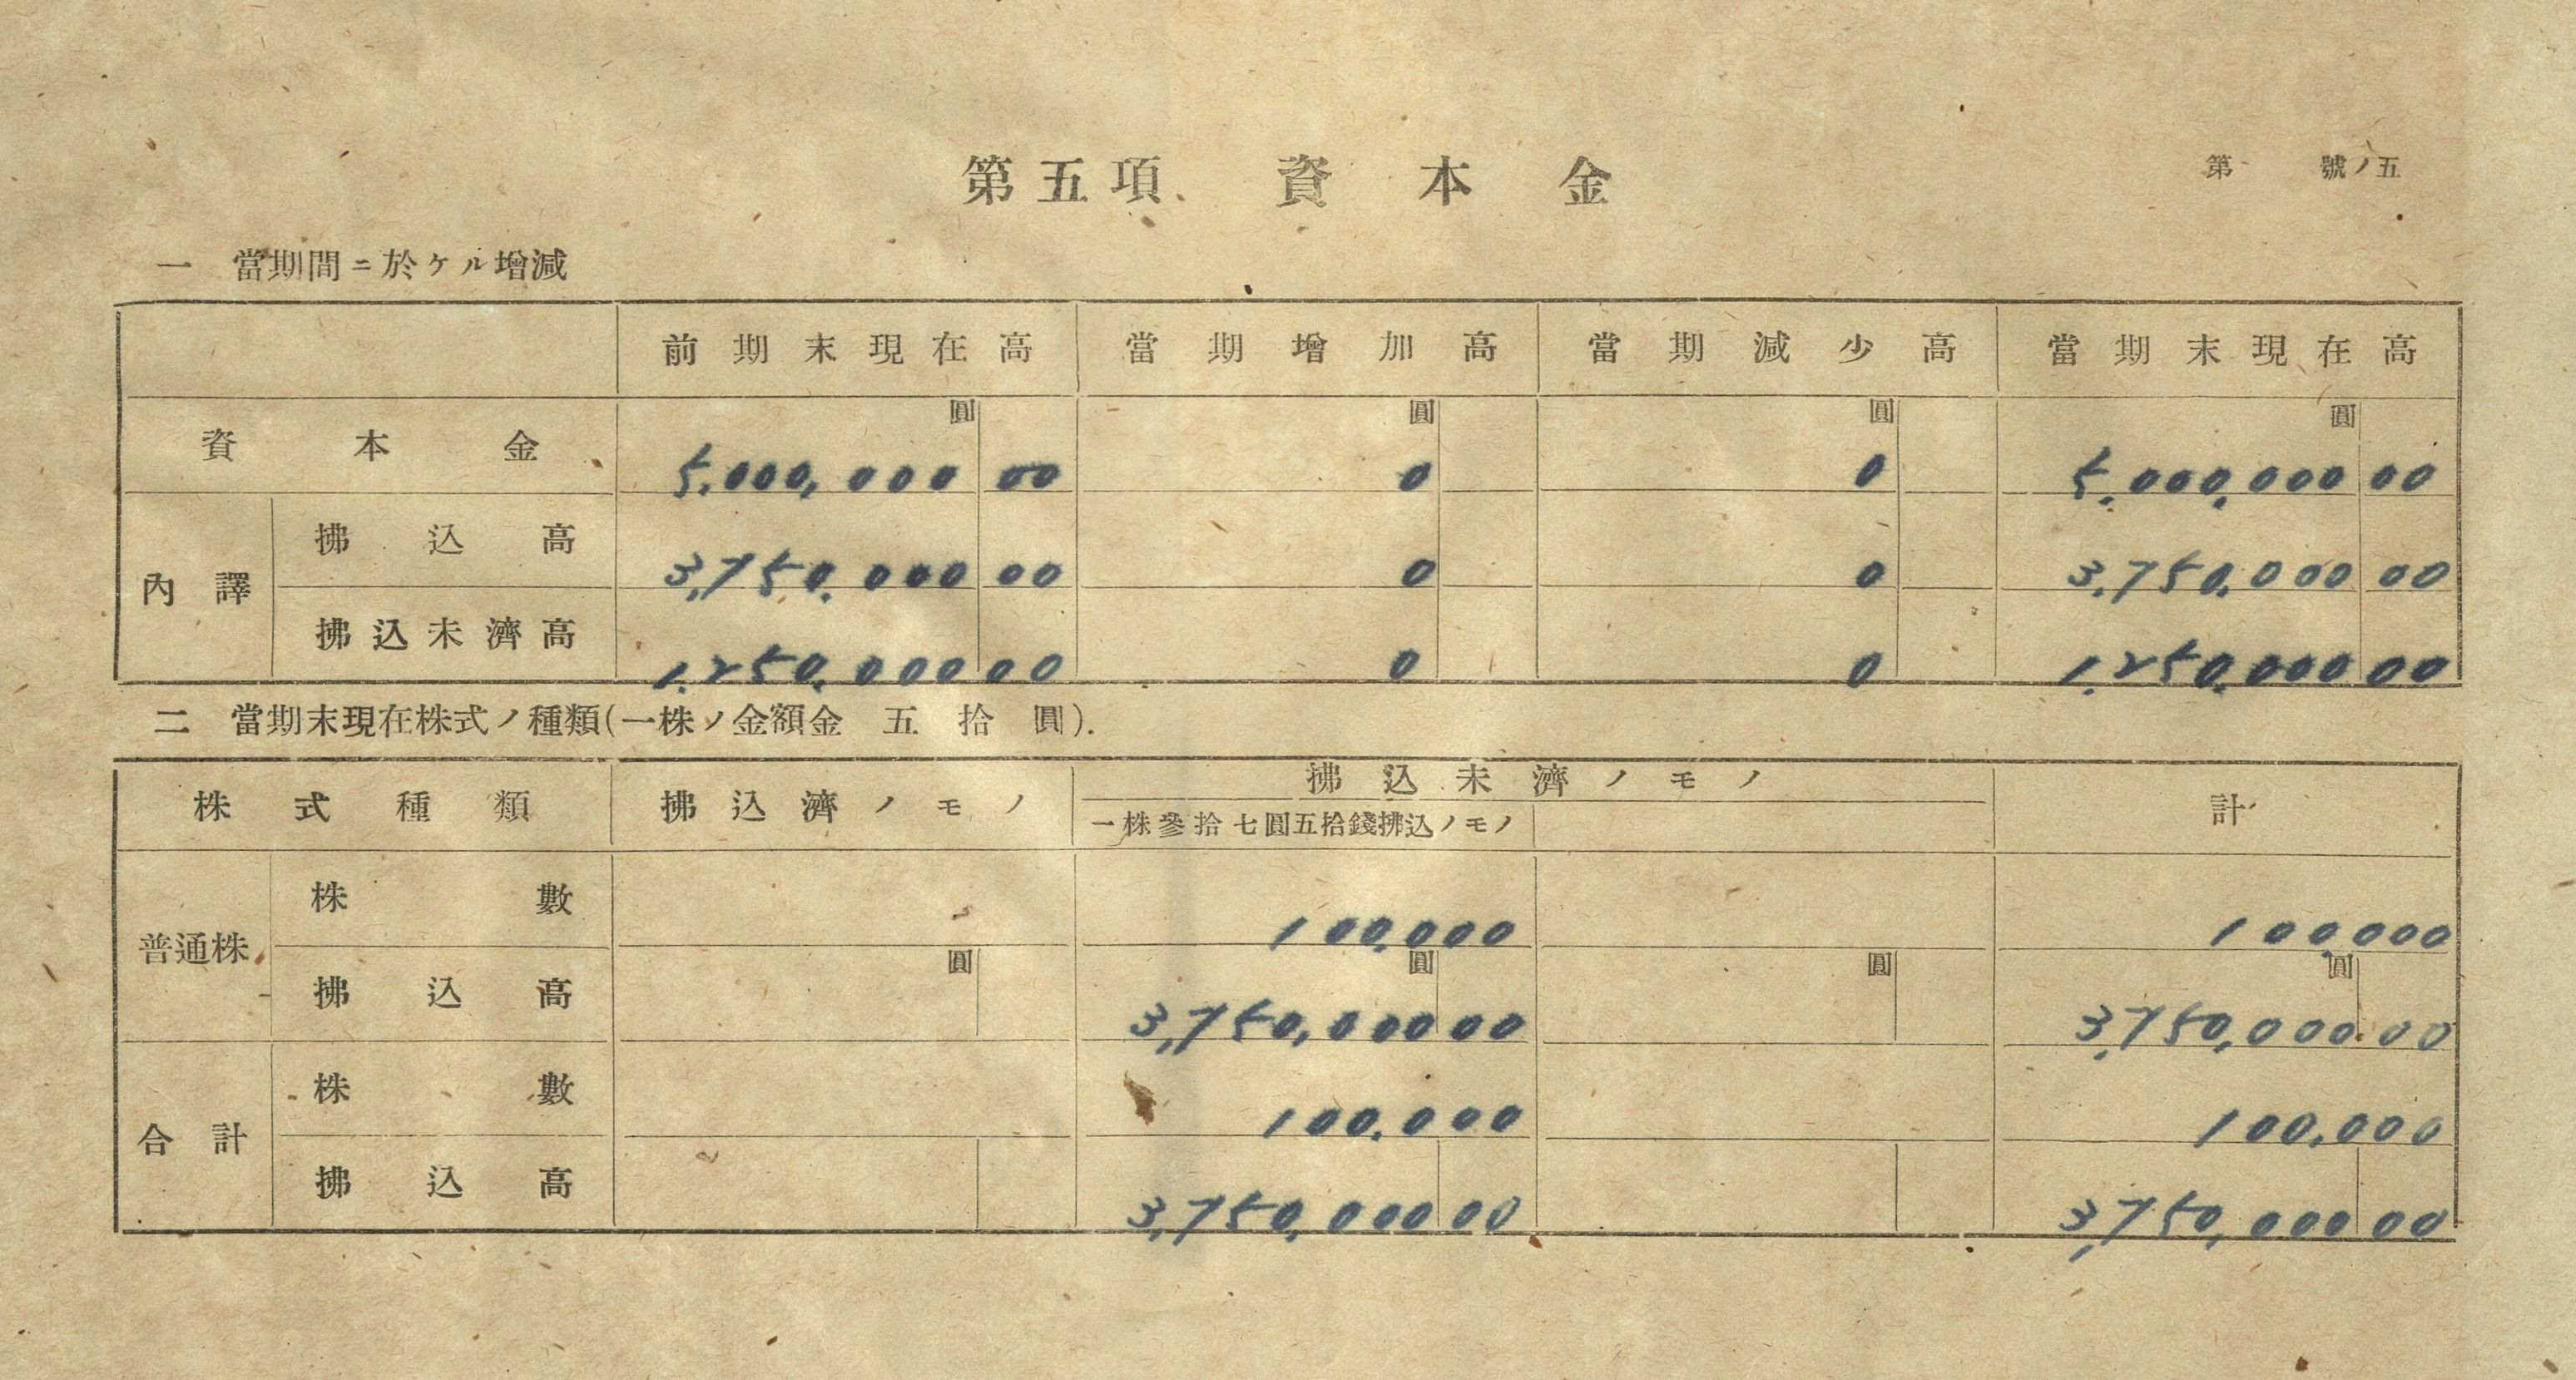 第五項 資本金
第 號ノ五
一 當期間ニ於ケル增減
前期末現在高 當期增加高 當期減少高 當期末現在高
圓 圓 圓 圓
資本金 5,000,000 00 0 0 5,000,000 00
內譯
拂込高 3,750,000 00 0 0 3,750,000 00
拂込未濟高 1,250,000 00 0 0 1,250,000 00
二 當期末現在株式ノ種類(一株ノ金額金 五拾圓).
株式種類 拂込濟ノモノ 拂込未濟ノモノ 計
一株參拾七圓五拾錢拂込ノモノ
普通株
株數 100,000 100,000
圓 圓 圓 圓
拂込高 3,750,000 00 3,750,000 00
合計
株數 100,000 100,000
拂込高 3,750,000 00 3,750,000 00